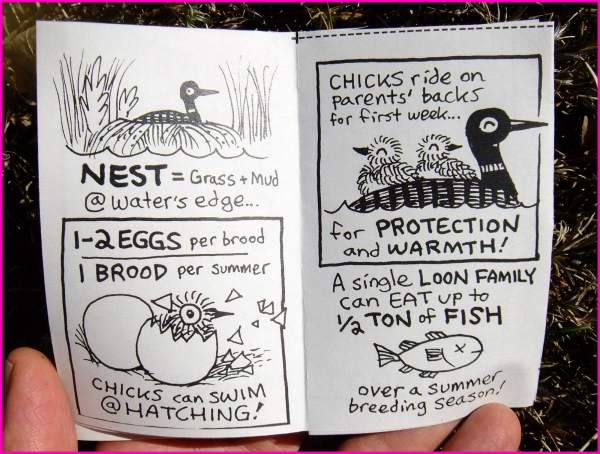 NEST = Grass + Mud
@ water's edge...
1-2 EGGS per brood
1 BROOD per summer
CHICKS can SWIM
@ HATCHING!
CHICKS ride on
parents' backs
for first week...
for PROTECTION
and WARMTH!
A single LOON FAMILY
can EAT up to
1/2 TON of FISH
over a summer
breeding season!